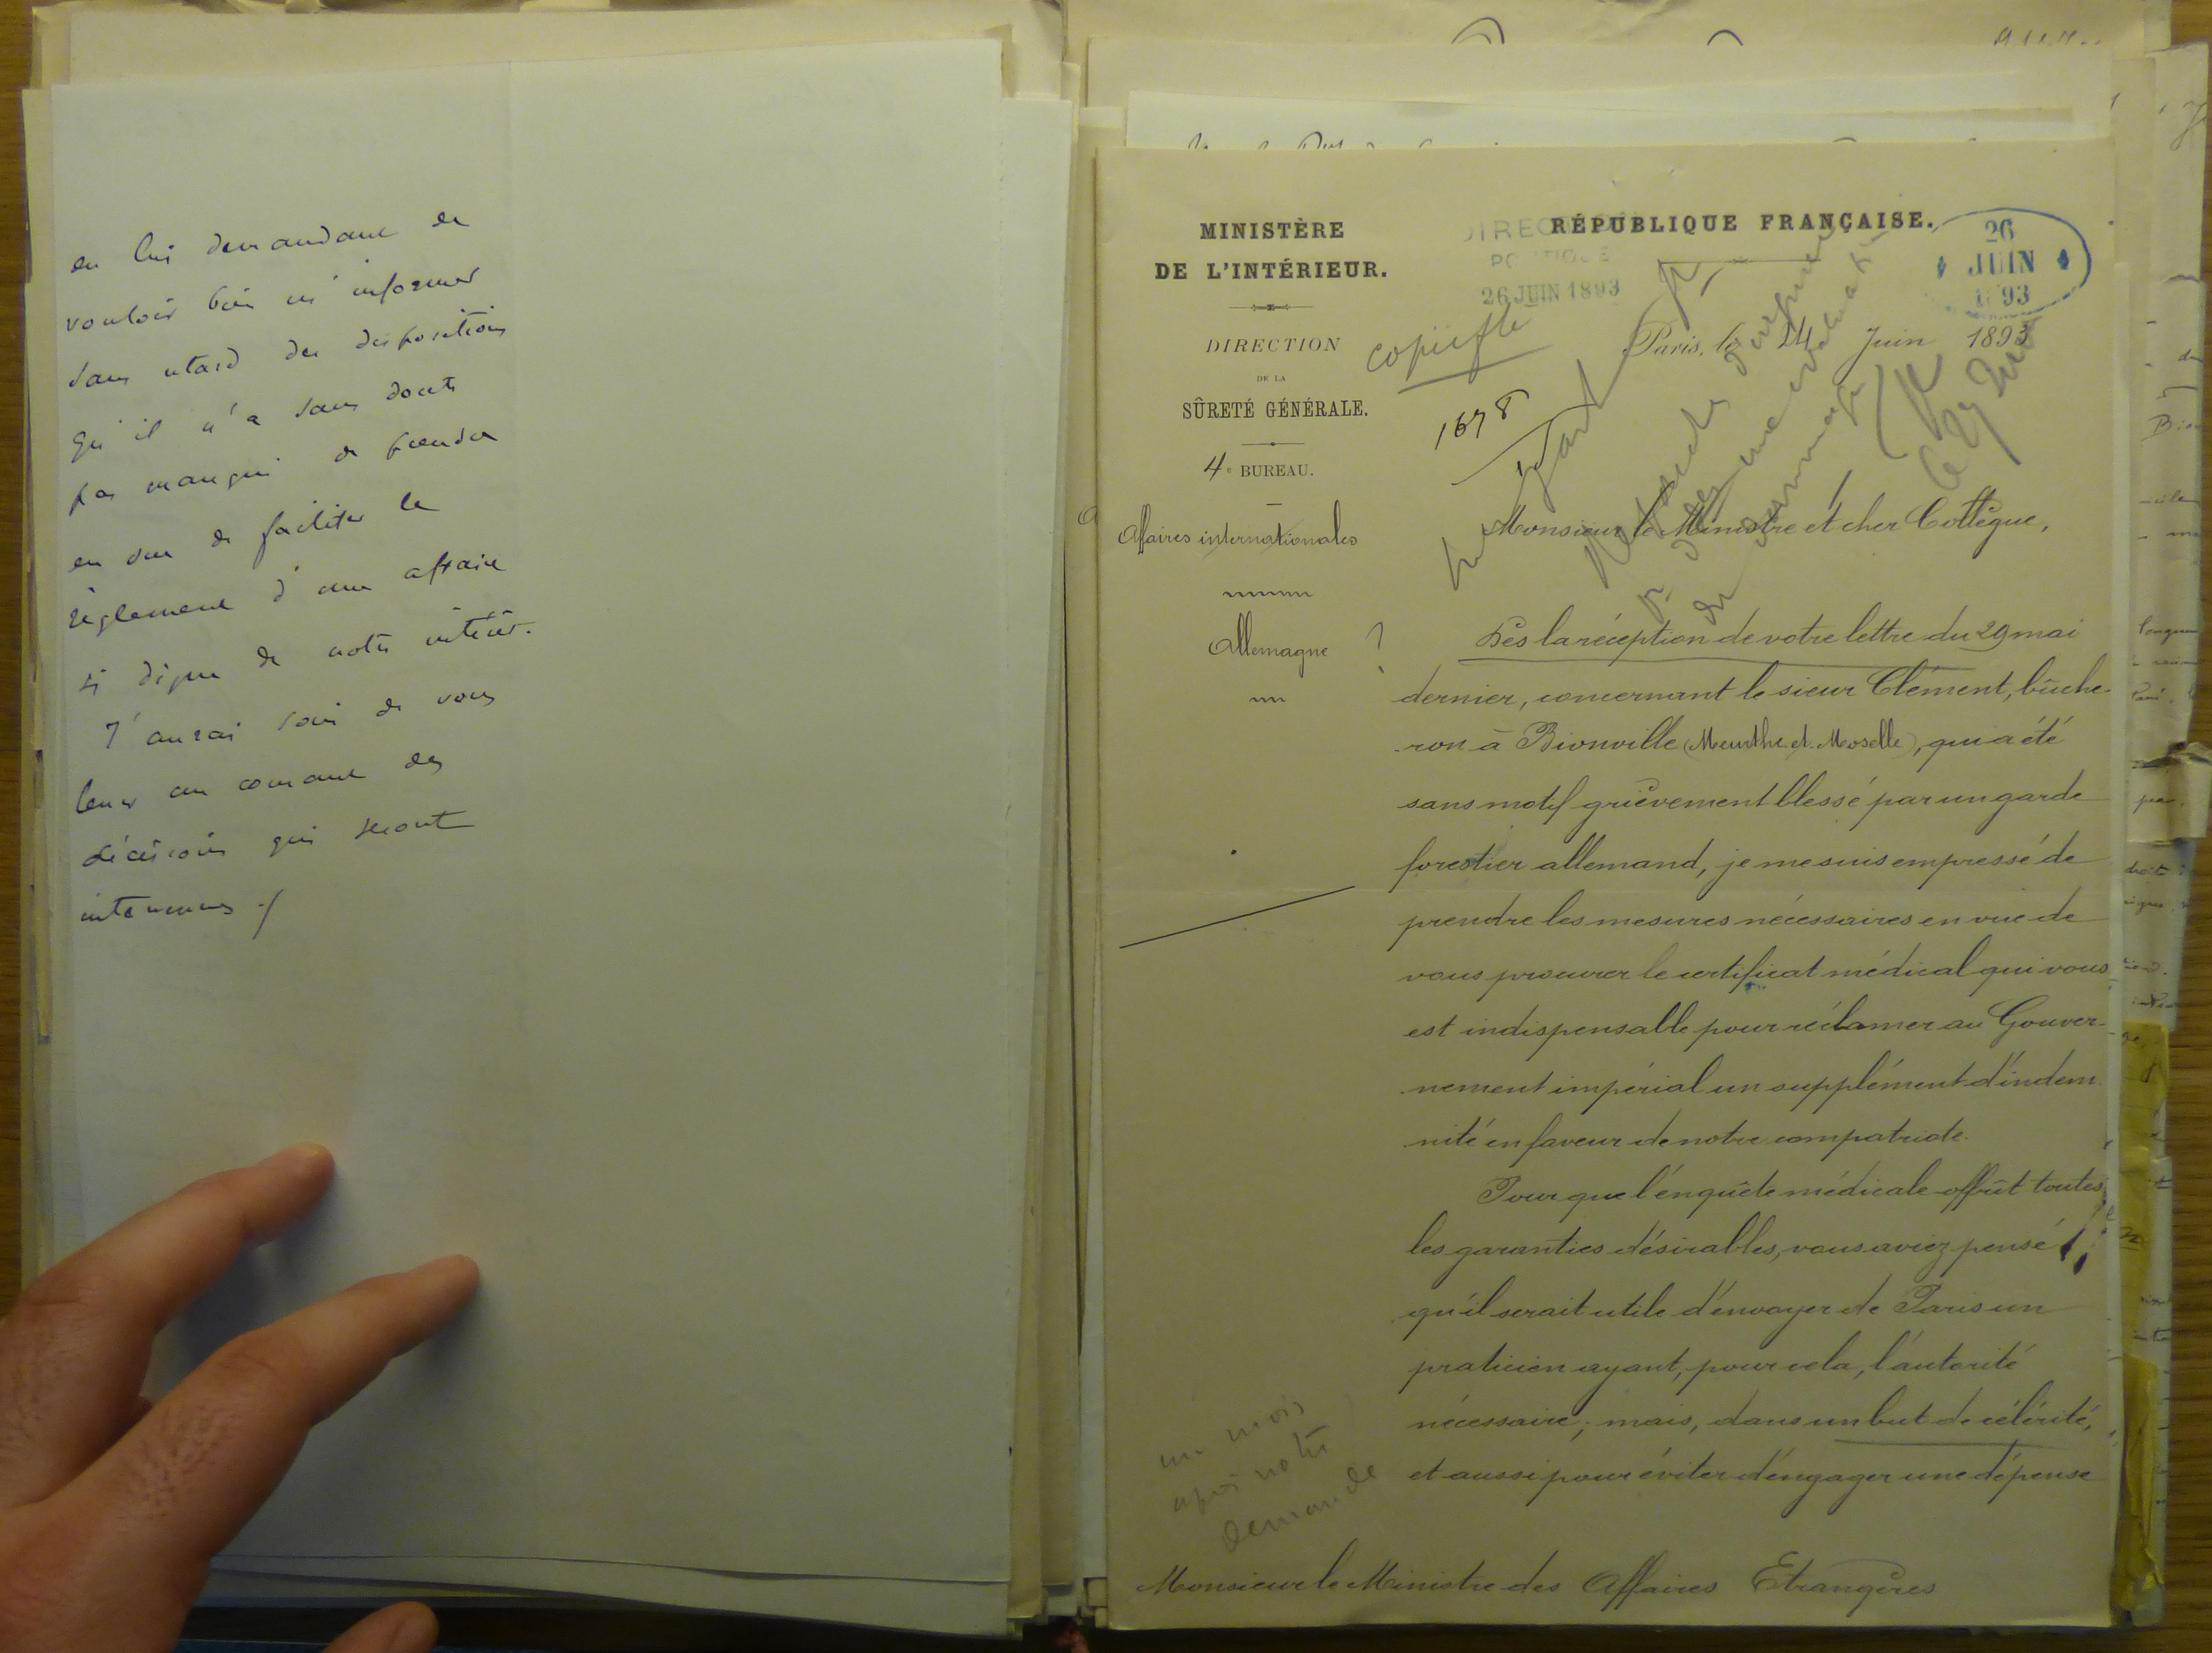 en lui demandant de
vouloir bien m'informer
sans retard des dispositions
qu'il n'a sans doute
pas manqué de prendre
en vue de faciliter le
règlement d'une affaire
si digne de notre intérêt.
J'aurai soin de vous
tenir au courant des
décisions qui seront
intervenues ./
MINISTÈRE
DE L'INTÉRIEUR.
DIRECTION
DE LA
SÛRETÉ GÉNÉRALE.
4e BUREAU.
Affaires internationales
Allemagne ?
RÉPUBLIQUE FRANÇAISE.
DIRECTION
POLITIQUE
26 JUIN 1893
26
JUIN
1893
copie
1678
Paris, le 24 Juin 1893
Monsieur le Ministre et cher Collègue,
Dès la réception de votre lettre du 29 mai
dernier, concernant le sieur Clément, bûche-
-ron à Bionville (Meurthe et Moselle), qui a été
sans motif grièvement blessé par un garde
forestier allemand, je me suis empressé de
prendre les mesures nécessaires en vue de
vous procurer le certificat médical qui vous
est indispensable pour réclamer au Gouver-
-nement impérial un supplément d'indem
nité en faveur de notre compatriote.
Pour que l'enquête médicale offrît toutes
les garanties désirables, vous aviez pensé
qu'il serait utile d'envoyer de Paris un
praticien ayant, pour cela, l'autorité
nécessaire; mais, dans un but de célérité,
et aussi pour éviter d'engager une dépense
un mois
après notre
demande
Monsieur le Ministre des Affaires Etrangères